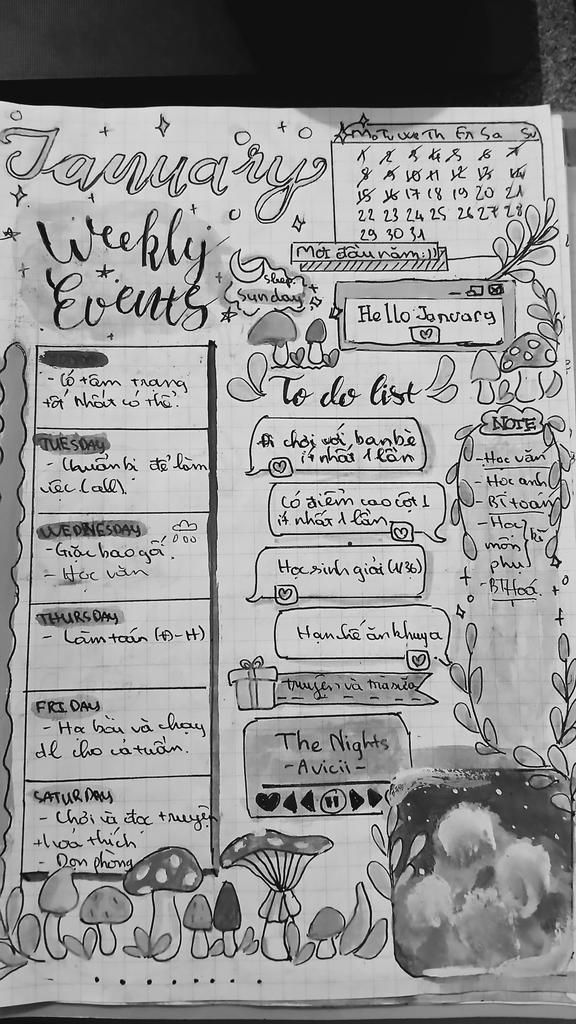 January
Mo Tu We Th Fr Sa Su
1 2 3 4 5 6 7
8 9 10 11 12 13 14
15 16 17 18 19 20 21
22 23 24 25 26 27 28
29 30 31
Mới đầu năm :))
Weekly
Events
sleep.
Sunday
Hello January
- Có tâm trạng
tốt nhất có thể.
TUESDAY
- Chuẩn bị để làm
việc (all).
WEDNESDAY
- Giặc bao gối.
- Học văn
THURSDAY
- Làm toán (Đ-H)
FRIDAY
- và chạy
dl cho cả tuần.
SATURDAY
- Chơi và đọc truyện
thích
- Dọn phòng
To do list
Đi chơi với bạn bè
ít nhất 1 lần
Có điểm cao cột 1
ít nhất 1 lần
Học sinh giỏi (1/36)
Hạn chế ăn khuya
truyện và trà sữa
The Nights
- Avicii -
NOTE
- Học văn
- Học anh
- Bt toán
- Học kì
môn
phụ
- Bt Hoá.